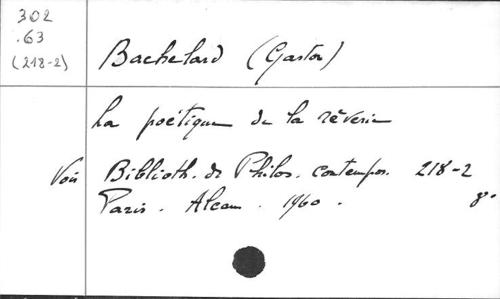 302
.63
(218-2)
Bachelard (Gaston)
La poétique de la rêverie
Voir Biblioth. de Philos. contempor. 218-2
Paris. Alcan. 1960. 8°